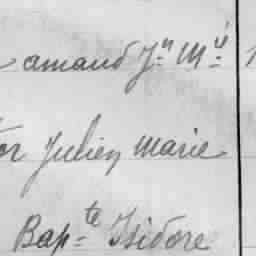 amand Jn Mie
or Julien Marie
Bapte Isidore